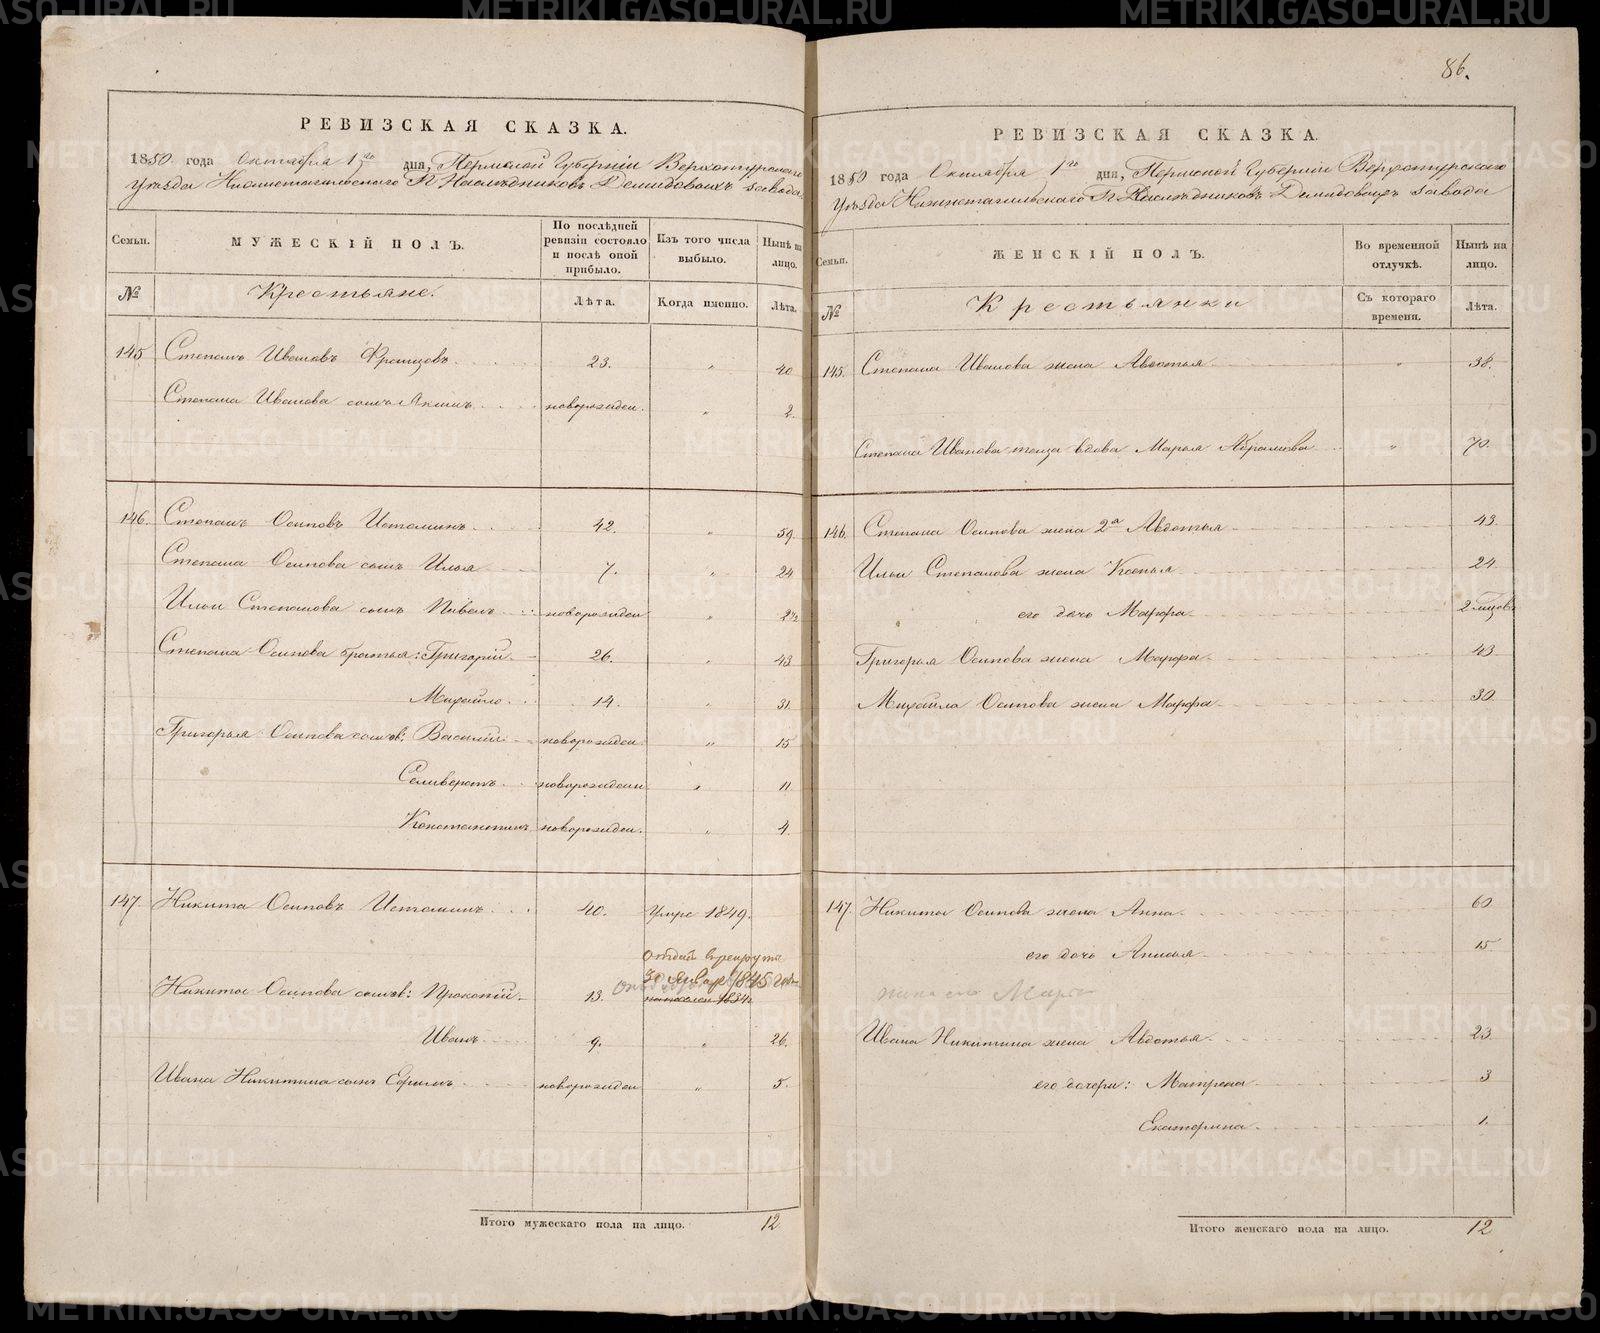 86.
РЕВИЗСКАЯ СКАЗКА.
1850 года Октября 1го дня, Пермской Губерніи Верхотурскаго
Уѣзда Нижнетагильскаго Г. Наслѣдниковъ Демидовыхъ завода
Семьи. МУЖЕСКІЙ ПОЛЪ. По послѣдней ревизіи состояло и послѣ оной прибыло. Изъ того числа выбыло. Нынѣ на лицо.
№ Крестьяне. Лѣта. Когда именно. Лѣта.
145 Степанъ Ивановъ 23. " 40
Степана Иванова сынъ Акимъ новорожден. " 2
146. Степанъ Осиповъ Истоминъ 42. " 59.
Степана Осипова сынъ Илья 7. " 24
Ильи Степанова сынъ Павелъ новорожден " 2½
Степана Осипова братья: Григорій 26. " 43
Михайло 14. " 31.
Григорья Осипова сынов: Василій новорожден " 15
Селиверстъ новорожденн " 11
Константинъ новорожден. " 4
147 Никита Осиповъ Истоминъ 40. Умре 1849.
отдан в рекрута
Никиты Осипова сынов: Прокопій 13. 1845
1834.
Иванъ 9. " 26.
Ивана Никитина сынъ Ефимъ новорожден " 5.
Итого мужескаго пола на лицо. 12
РЕВИЗСКАЯ СКАЗКА.
1850 года Октября 1го дня, Пермской Губерніи Верхотурскаго
Уѣзда Нижнетагильскаго Г. Наслѣдниковъ Демидовыхъ завода
Семьи. ЖЕНСКІЙ ПОЛЪ. Во временной отлучкѣ. Нынѣ на лицо.
№ Крестьянки Съ котораго времени. Лѣта.
145. Степана Иванова жена Авдотья " 38.
Степана Иванова теща вдова Марья Абрамова " 70.
146. Степана Осипова жена 2а Авдотья 43
Ильи Степанова жена Ксенья 24
его дочь Марфа 2
Григорья Осипова жена Марфа 43
Михайла Осипова жена Марфа 30
147. Никиты Осипова жена Анна 60
его дочь Анисья 15
жена его
Ивана Никитина жена Авдотья 23
его дочери: Матрена 3
Екатерина 1.
Итого женскаго пола на лицо. 12
METRIKI.GASO-URAL.RU